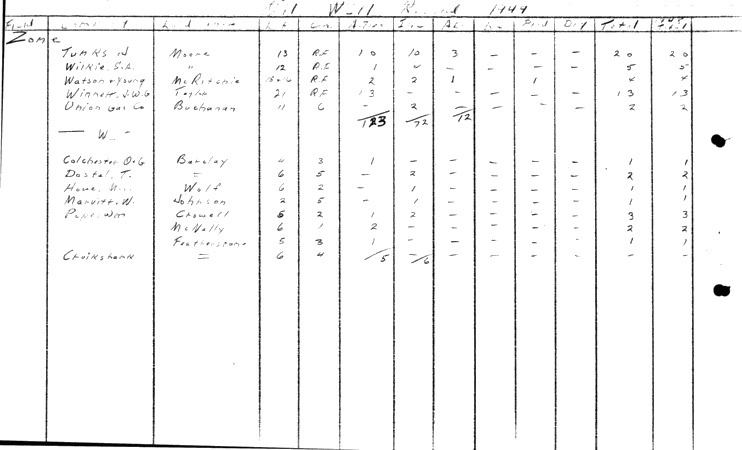 Oil Well Record 1944
Field Total
Zone
Moore 13 R.F 10 10 3 - - - 20 20
Wilkie, S.A. " 12 R.F 1 - - - - 5 5
Watson & Young McRitchie R.F 2 2 1 - 1 - 4 4
Winnett, J.W.G 21 R.F 13 - - - - - 13 13
Union Gas Co Buchanan 11 6 - 2 - - - - 2 2
123 72 12
— W —
Colchester O+G Barclay 4 3 1 - - - - - 1 1
Dostal, T. = 6 5 - 2 - - - - 2 2
Wolf 6 2 - 1 - - - - 1 1
W. Johnson 2 5 - 1 - - - - 1 1
Crowell 5 2 1 2 - - - - 3 3
McNally 6 1 2 - - - - - 2 2
Featherstone 5 3 1 - - - - - 1 1
Cruikshank = 6 4 5 6 - - - - - -